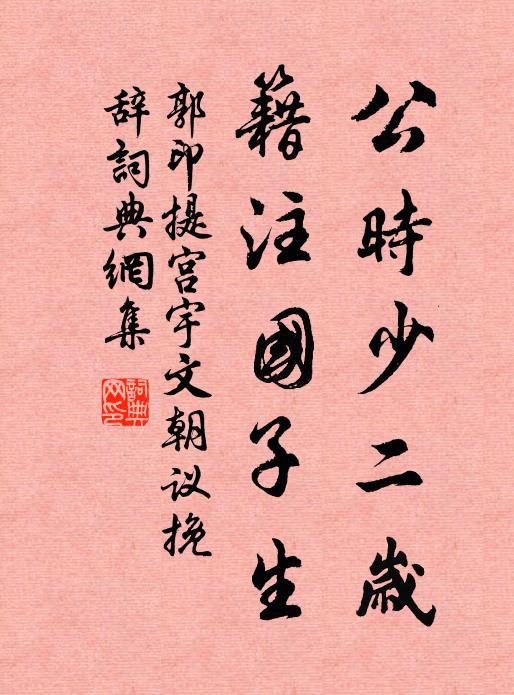 公時少二歲
籍注國子生
郭印提宫宇文朝议挽
辞詞典網集
詞典网印